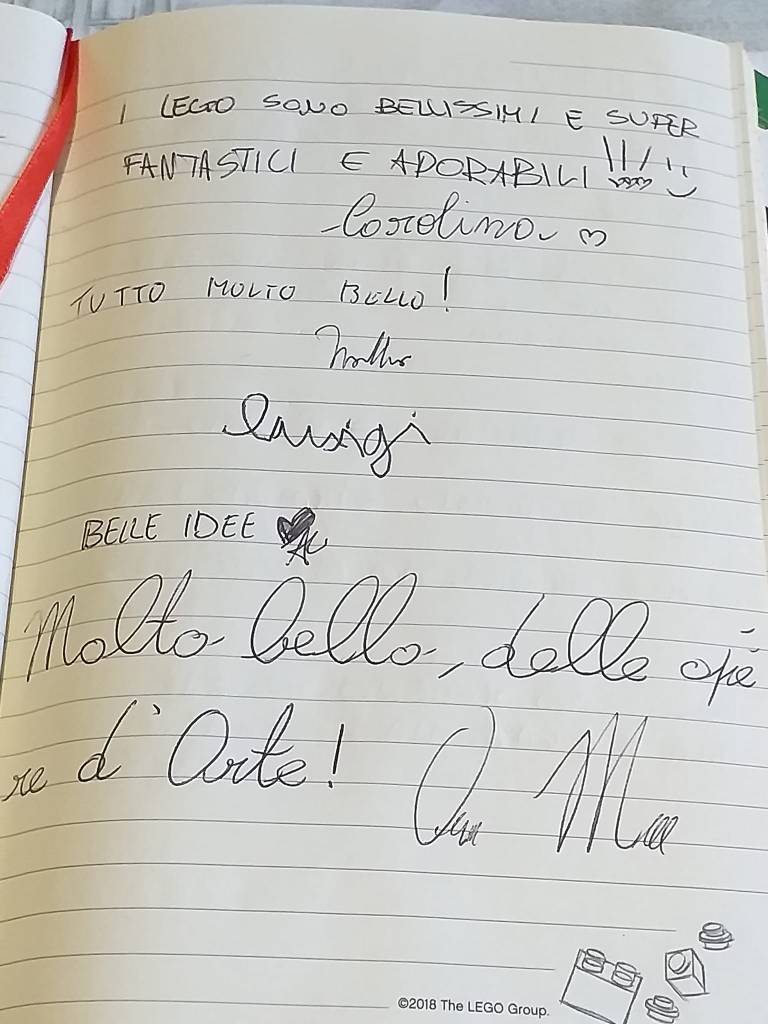 I LEGO SONO BELLISSIMI E SUPER
FANTASTICI E ADORABILI !!!
Carolina
TUTTO MOLTO BELLO!
Luigi
BELLE IDEE
Molto bello, delle ope
re d'Arte!
©2018 The LEGO Group.